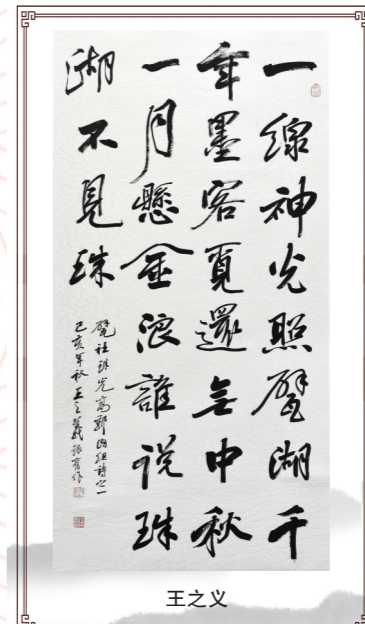 一線神光照甓湖千
年墨客覓還無中秋
一月懸金浪誰説珠
湖不見珠
甓社珠光高郵湖組詩之一
己亥年秋王之義録舊作
王之义